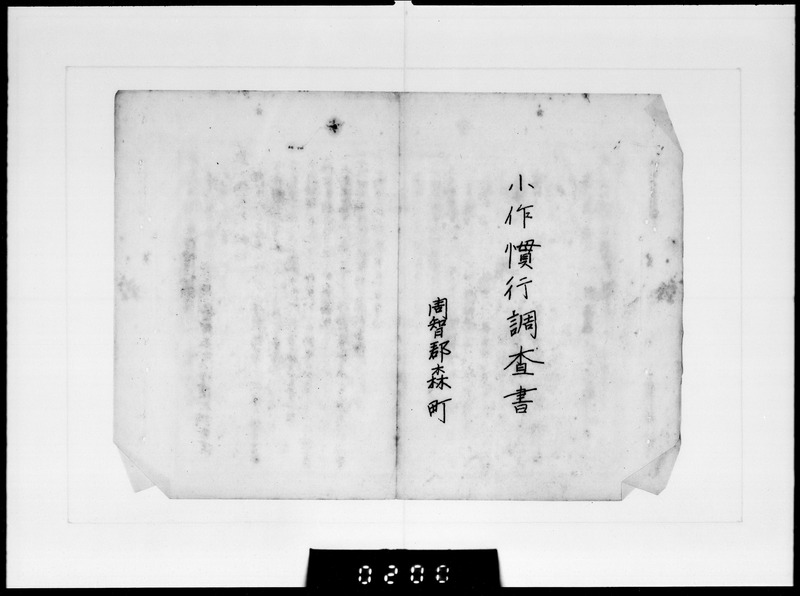 小作慣行調査書
周智郡森町
0200